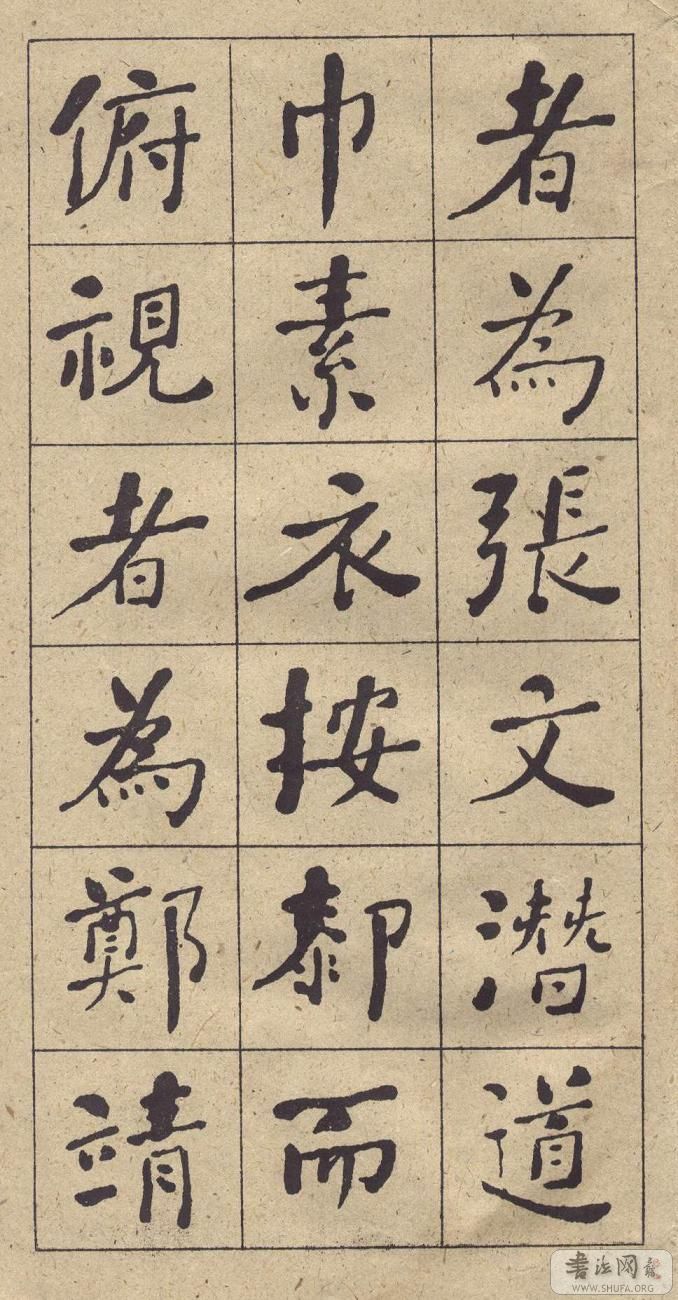 者為張文潛道
巾素衣按䣛而
俯視者為鄭靖
書法网
WWW.SHUFA.ORG